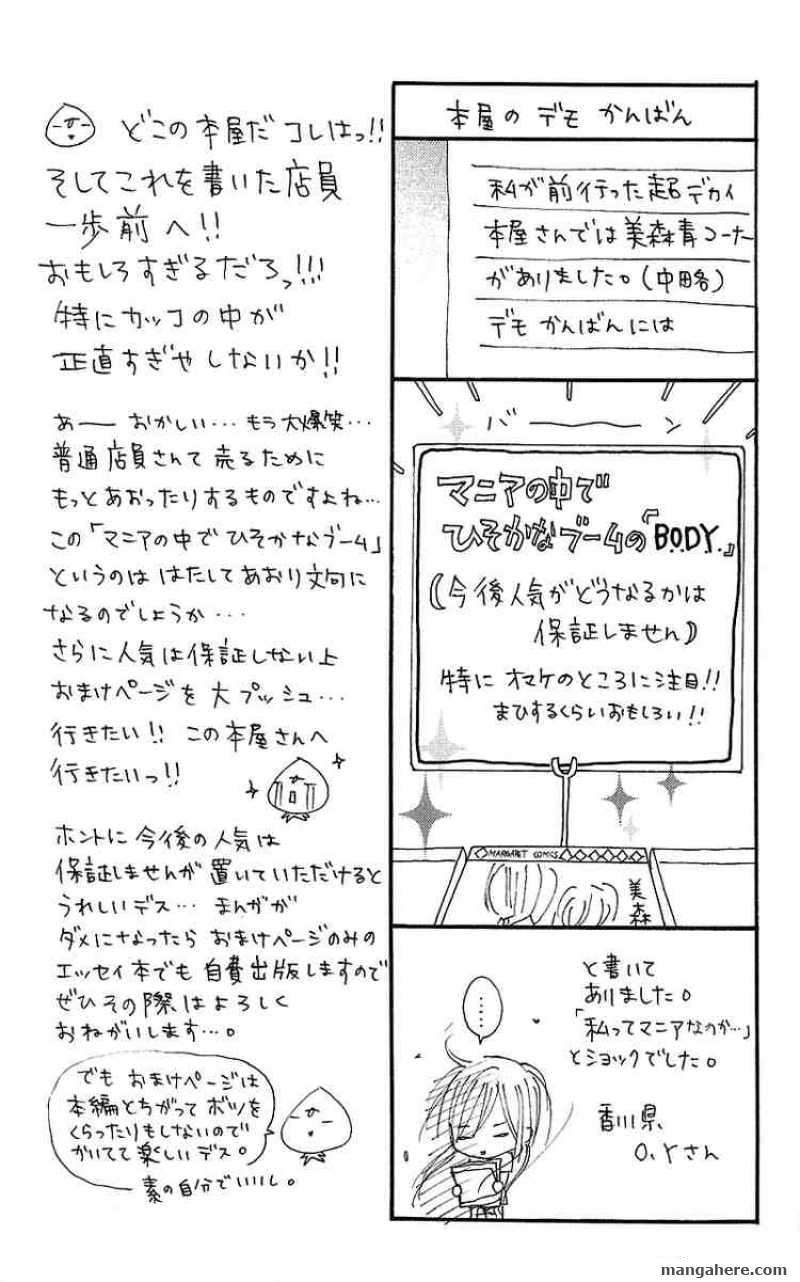 本屋の デモ かんばん
私が前行った超デカイ
本屋さんでは美森青コーナー
がありました。(中略)
デモ かんばんには
バーーン
マニアの中で
ひそかなブームの『BODY.』
(今後人気がどうなるかは
保証しません)
特に オマケのところに注目!!
まひするくらいおもしろい!!
MARGARET COMICS
美森
……
と書いて
ありました。
「私ってマニアなのか…」
とショックでした。
香川県
O.Yさん
どこの本屋だ コレはっ!!
そしてこれを書いた店員
一歩前へ!!
おもしろすぎるだろっ!!!
特にカッコの中が
正直すぎやしないか!!
あーー おかしい… もう大爆笑…
普通店員さんて 売るために
もっとあおったりするものですよね…
この「マニアの中で ひそかなブーム」
というのは はたしてあおり文句に
なるのでしょうか…
さらに人気は保証しない上
おまけページを 大プッシュ…
行きたい!! この本屋さんへ
行きたいっ!!
ホントに今後の人気は
保証しませんが 置いていただけると
うれしいデス… まんがが
ダメになったら おまけページのみの
エッセイ本でも 自費出版しますので
ぜひその際はよろしく
おねがいします…。
でも おまけページは
本編とちがって ボツを
くらったりもしないので
かいてて楽しいデス。
素の自分でいいし。
mangahere.com